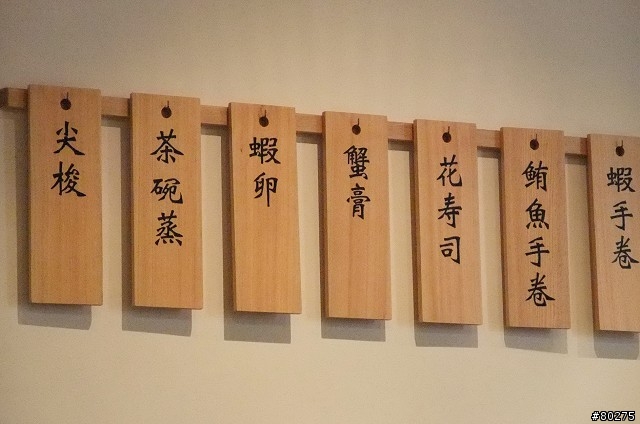 尖梭
茶碗蒸
蝦卵
蟹膏
花寿司
鮪魚手卷
蝦手卷
#80275